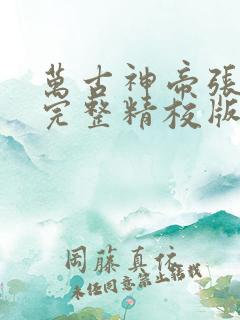 萬古神帝張
完整精校版
岡藤真依
未经同意禁止转载